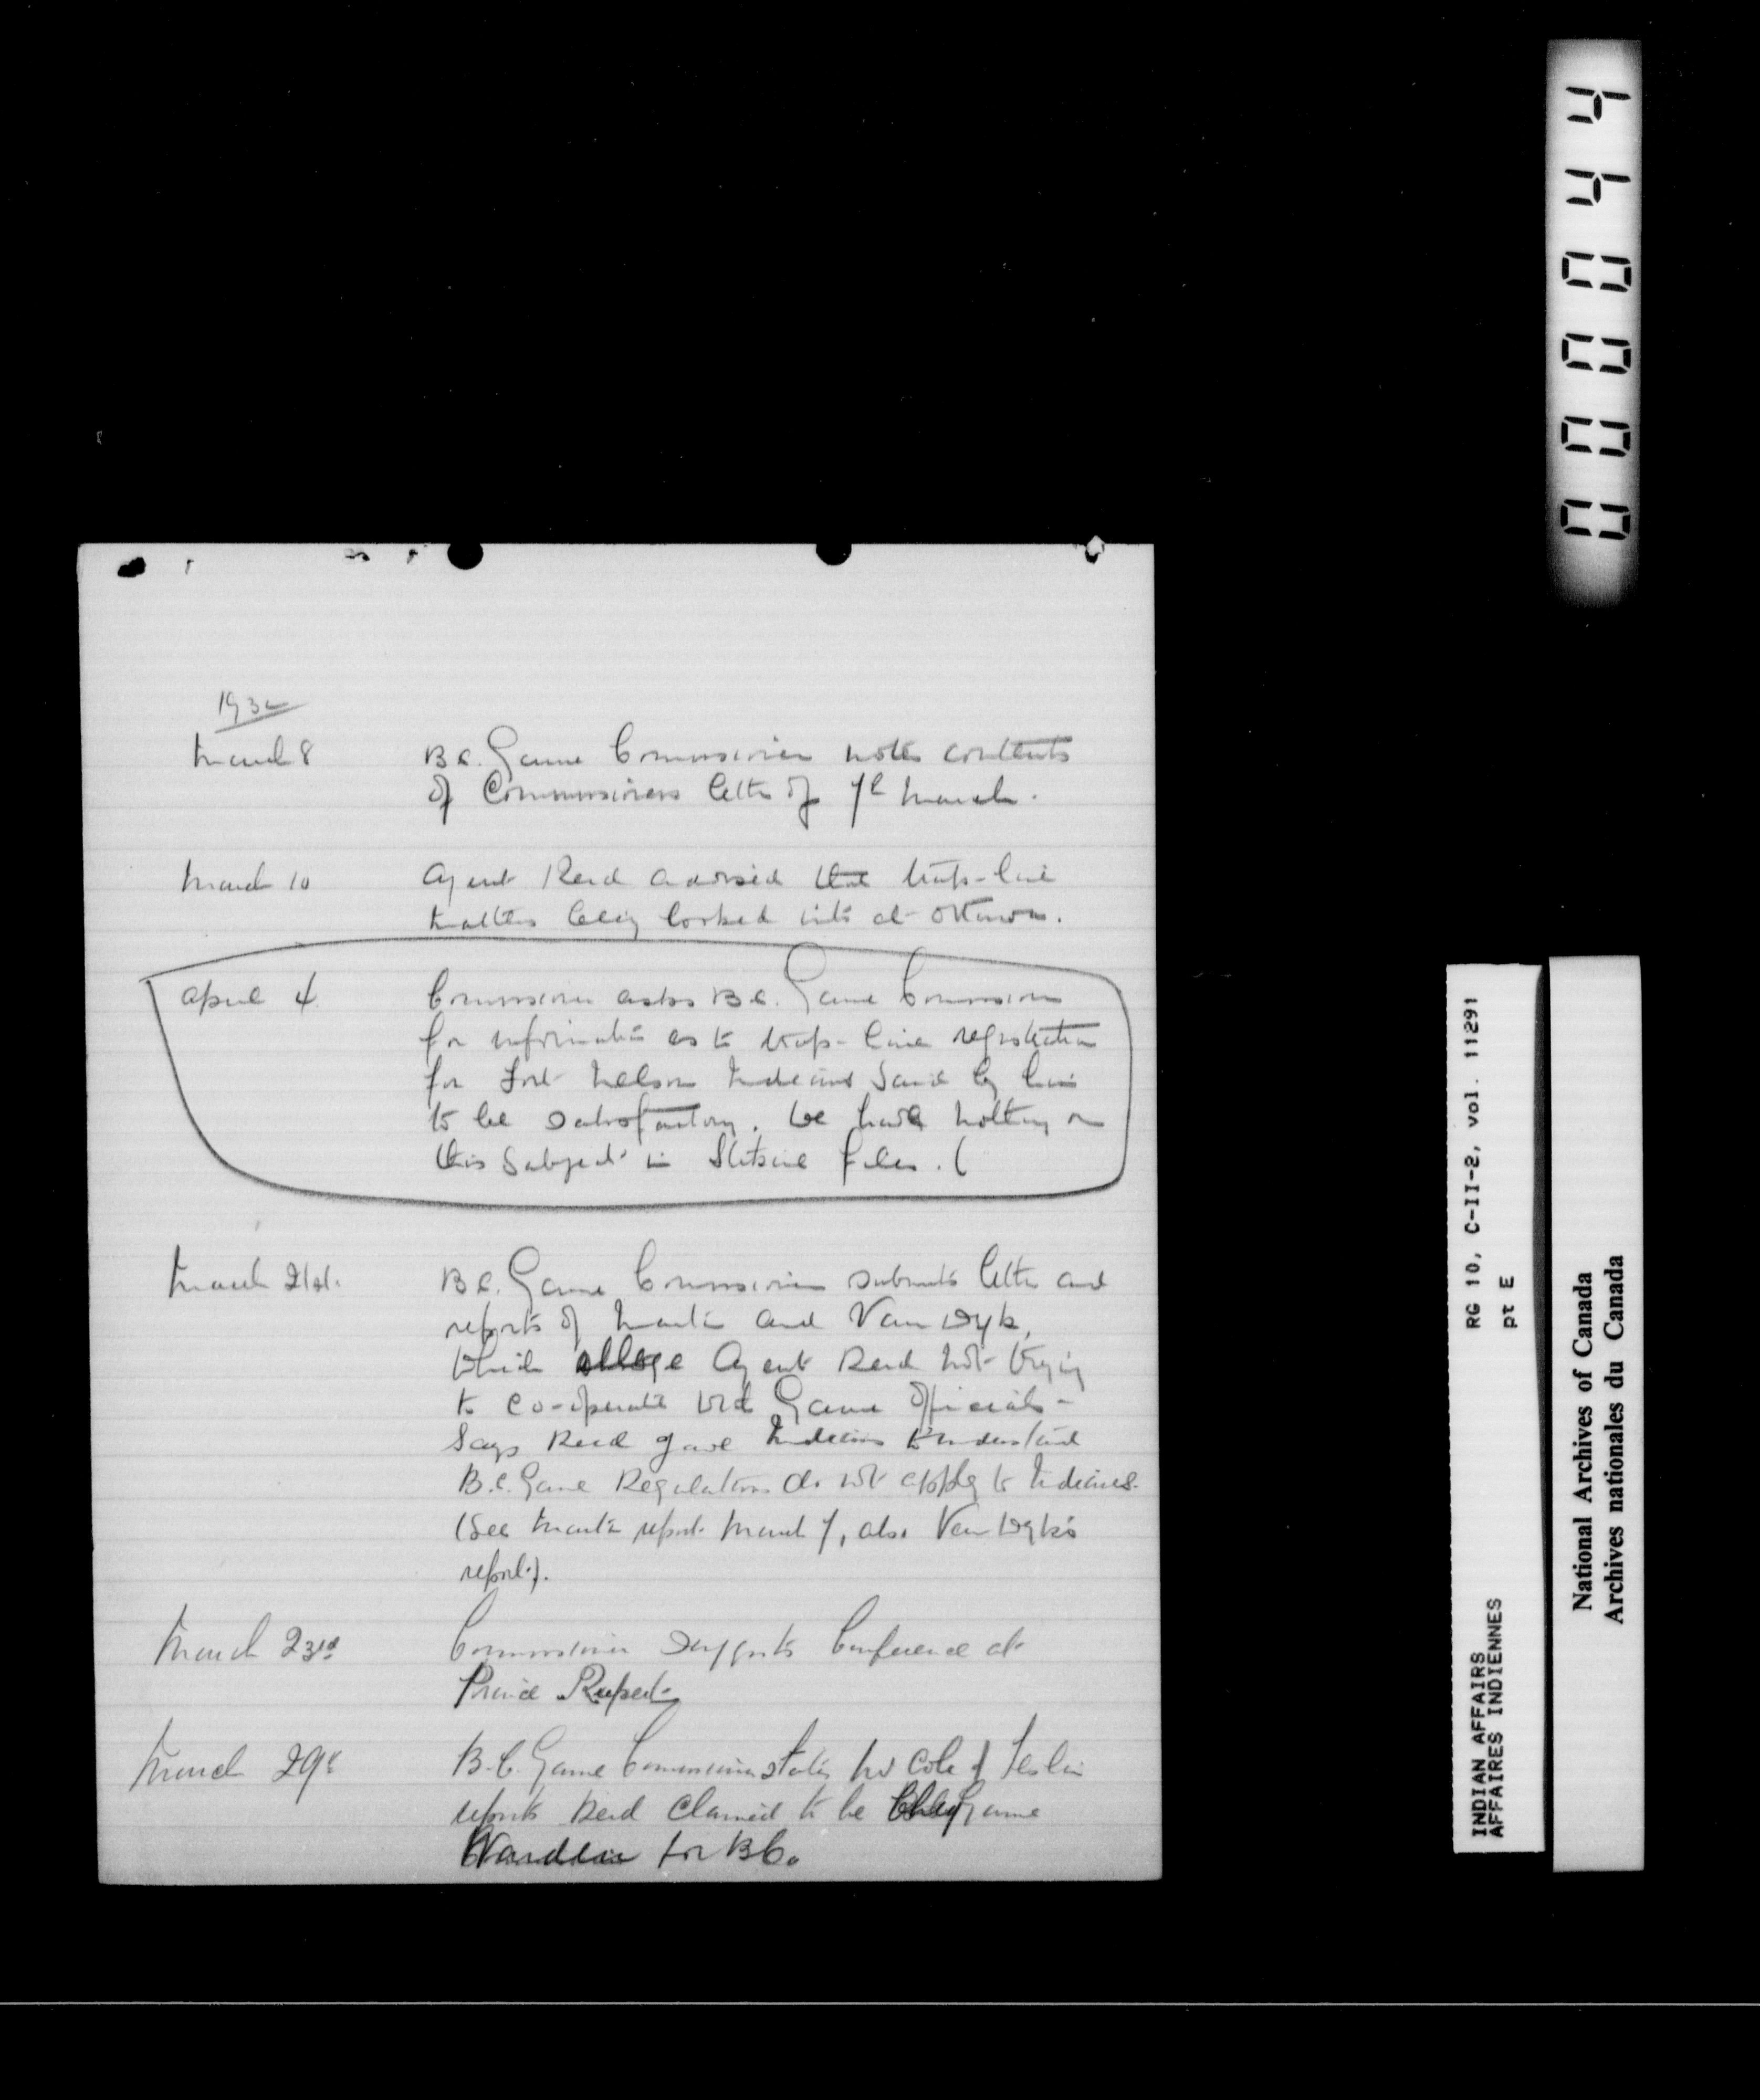 1932
March 8 B.C. Game Commissioner notes contents
of Commissioners letter of 7th March.
March 10 Agent Reid advised that trap-line
matters being looked into at Ottawa.
April 4 Commissioner asks B.C. Game Commission
for information as to trap-line registration
for Fort Nelson Indians said by him
to be satisfactory. We have nothing on
this subject in Stikine files. (
March 21st. B.C. Game Commission submits letter and
reports of Martin and Van Dyk,
which allege Agent Reid not trying
to co-operate with Game Officials -
Says Reid gave Indians to understand
B.C. Game Regulations do not apply to Indians.
(See Martin report March 7, also Van Dyk's
report).
March 23rd Commissioner suggests Conference at
Prince Rupert
March 29th B.C. Game Commission states Mr Cole of Teslin
reports Reid claimed to be Chief Game
Warden for B.C.
000044
RG 10, C-II-2, vol. 11291
pt E
INDIAN AFFAIRS
AFFAIRES INDIENNES
National Archives of Canada
Archives nationales du Canada